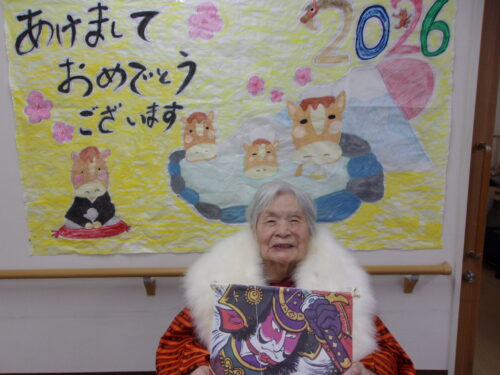 あけまして
おめでとう
ございます
2026